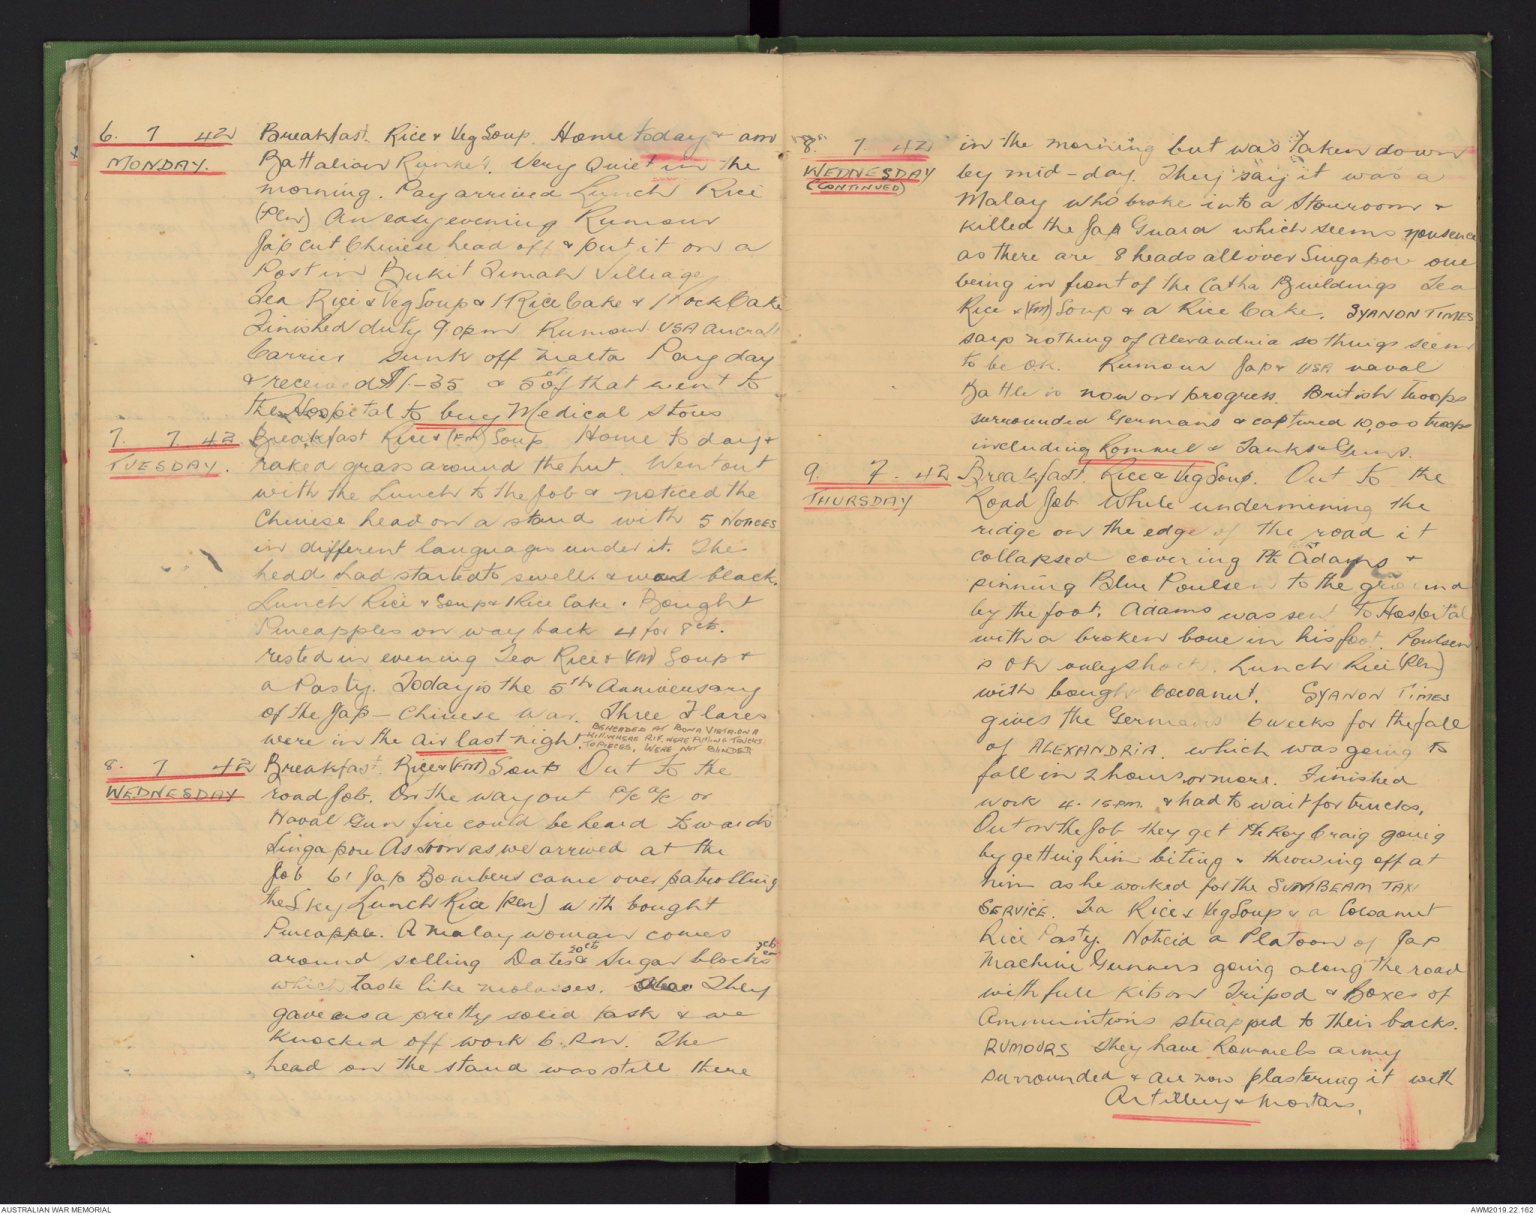 6. 7 42
MONDAY.
Breakfast. Rice & Veg Soup. Home today & am
Battalion Runner. Very Quiet in the
morning. Pay arrived Lunch Rice
(Pln) An easy evening Rumour
Jap cut Chinese head off & put it on a
Post in Bukit Timah Village
Tea Rice & Veg Soup & 1 Rice Cake & 1 Rock Cake
Finished duty 9 opm Rumour USA Aircraft
Carrier sunk off Malta Pay day
& received $1.-35 & 5 cts of that went to
the Hospital to buy Medical stores
7. 7 42
TUESDAY.
Breakfast Rice & (FM) Soup. Home today &
raked grass around the hut. Went out
with the Lunch to the Job & noticed the
Chinese head on a stand with 5 NOTICES
in different languages under it. The
head had started to swell & went black.
Lunch Rice & Soup & 1 Rice Cake. Bought
Pineapples on way back 4 for 8 cts.
rested in evening Tea Rice & (FM) Soup &
a Pasty. Today is the 5th Anniversary
of the Jap - Chinese War. Three Flares
were in the air last night
BEHEADED AT BONA VISTA ON A
HILL WHERE R.I.F. WERE PULLING TRUCKS
TO PIECES, WERE NOT BLINDED
8. 7 42
WEDNESDAY
Breakfast. Rice & (FM) Soup Out to the
road Job. On the way out A/C A/C or
Naval Gun fire could be heard towards
Singapore As soon as we arrived at the
Job 61 Jap Bombers came over patrolling
the Sky Lunch Rice (Pln) with bought
Pineapple. A Malay woman comes
around selling Dates 20 cts & Sugar blocks 7 cts
which taste like molasses. They
gave us a pretty solid task & we
Knocked off work 6. P.m. The
head on the stand was still there
8. 7 42
WEDNESDAY
(CONTINUED)
in the morning but was taken down
by mid-day. They say it was a
Malay who broke into a Storeroom &
killed the Jap Guard which seems nonsence
as there are 8 heads all over Singapore one
being in front of the Catha Buildings Tea
Rice & (FM) Soup & a Rice Cake. SYANON TIMES
says nothing of Alexandria so things seem
to be OK. Rumour Jap & USA naval
Battle is now on progress. British troops
surrounded Germans & captured 10,000 troops
including Rommel & Tanks & Guns.
9. 7. 42
THURSDAY
Breakfast. Rice & Veg Soup. Out to the
Road Job While undermining the
ridge on the edge of the road it
collapsed covering Pte Adams &
pinning Blue Poulsen to the ground
by the foot. Adams was sent to Hospital
with a broken bone in his foot. Poulsen
is OK only shock. Lunch Rice (Pln)
with bought Cocoanut. SYANON TIMES
gives the Germans 6 weeks for the fall
of ALEXANDRIA. which was going to
fall in 2 hours or more. Finished
work 4.15 P.M. & had to wait for trucks.
Out on the Job they get Pte Roy Craig going
by getting him biting & throwing off at
him as he worked for the SUNBEAM TAXI
SERVICE. Tea Rice & Veg Soup & a Cocoanut
Rice Pasty. Noticed a Platoon of Jap
Machine Gunners going along the road
with full kits on Tripod & Boxes of
Ammunitions strapped to their backs.
RUMOURS they have Rommels army
surrounded & are now plastering it with
Artillery & Mortars.
AUSTRALIAN WAR MEMORIAL
AWM2019.22.162